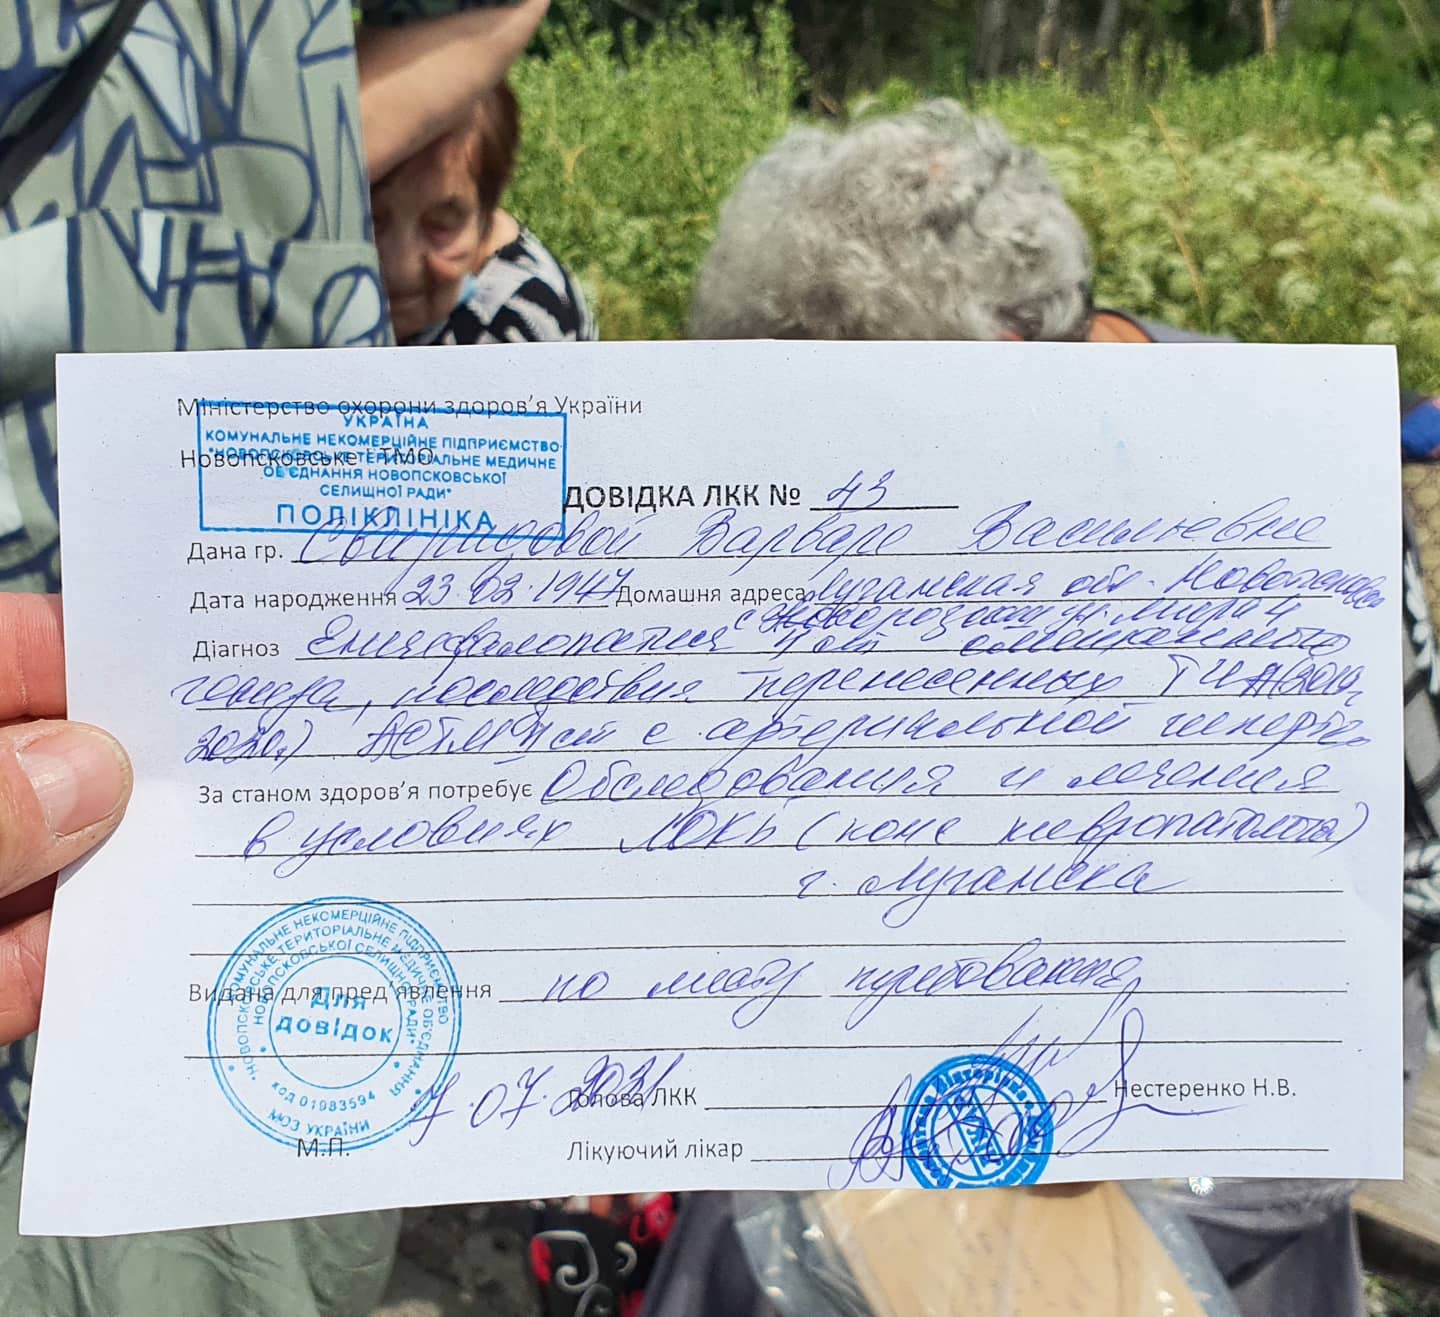 Міністерство охорони здоров'я України
УКРАЇНА
КОМУНАЛЬНЕ НЕКОМЕРЦІЙНЕ ПІДПРИЄМСТВО
"НОВОПСКОВСЬКЕ ТЕРИТОРІАЛЬНЕ МЕДИЧНЕ
Новопсковське ТМО
ОБ'ЄДНАННЯ НОВОПСКОВСЬКОЇ
СЕЛИЩНОЇ РАДИ"
ПОЛІКЛІНІКА
ДОВІДКА ЛКК № 43
Дана гр. Варваре Васильевне
Дата народження 23.02.1947 Домашня адреса Луганская обл.
Діагноз Енцефалопатия смешанного
генеза, последствия перенесенных ТИА (2019,
2020г) с артериальной
За станом здоров'я потребує Обследования и лечения
в условиях ЛОКБ (конс невропатолога)
г. Луганска
Видана для пред'явлення по месту требования
КОМУНАЛЬНЕ НЕКОМЕРЦІЙНЕ ПІДПРИЄМСТВО
"НОВОПСКОВСЬКЕ ТЕРИТОРІАЛЬНЕ МЕДИЧНЕ ОБ'ЄДНАННЯ
НОВОПСКОВСЬКОЇ СЕЛИЩНОЇ РАДИ"
Для
довідок
КОД 01983594
МОЗ УКРАЇНИ
07.2021
Голова ЛКК Нестеренко Н.В.
М.П.
Лікуючий лікар